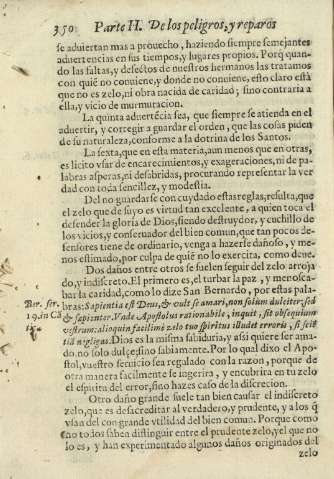 350 Parte II. De los peligros, y reparos
se aduiertan mas a prouecho, haziendo siempre semejantes
aduertencias en sus tiempos, y lugares propios. Porq̃ quan-
do las faltas, y defectos de nuestros hermanos las tratamos
con quiẽ no conuiene, y donde no conuiene, esto claro està
que no es zelo, ni obra nacida de caridad; sino contraria a
ella, y vicio de murmuracion.
La quinta aduertẽcia sea, que siempre se atienda en el
aduertir, y corregir a guardar el orden, que las cosas piden
de su naturaleza, conforme a la dotrina de los Santos.
La sexta, que en esta materia, aun menos que en otras,
es licito vsar de encarecimientos, y exageraciones, ni de pa-
labras asperas, ni desabridas, procurando representar la ver
dad con toda senzillez, y modestia.
Del no guardarse con cuydado estas reglas, resulta, que
el zelo que de suyo es virtud tan excelente, a quien toca el
defender la gloria de Dios, siendo destruydor, y cuchillo de
los vicios, y conseruador del bien comun, que tan pocos de-
fensores tiene de ordinario, venga a hazerse dañoso, y me-
nos estimado, por culpa de quiẽ no lo exercita, como deue.
Dos daños entre otros se suelen seguir del zelo arroja
do, y indiscreto. El primero es, el turbar la paz, y menosca-
bar la caridad, como lo dize San Bernardo, por estas pala-
Ber. ser. 19. in Cã tic.
bras: Sapientia est Deus, & vult se amari, non solum dulciter, sed
& sapienter. Vade Apostolus rationabile, inquit, sit obsequium
vestrum: alioquin facilimè zelo tuo spiritus illudet erroris, si sciẽ
tiã negligas. Dios es la misma sabiduria, y assi quiere ser ama-
do, no solo dulce, sino sabiamente. Por lo qual dixo el Apos-
tol, vuestro seruicio sea regalado con la razon, porque de
otra manera facilmente se ingerira, y encubrira en tu zelo
el espiritu del error, sino hazes caso de la discrecion.
Otro daño grande suele tan bien causar el indiscreto
zelo, que es desacreditar al verdadero, y prudente, y a los q̃
vsan del con grande vtilidad del bien comun. Porque como
no todos saben distinguir entre el prudente zelo, y el que no
lo es, y han experimentado algunos daños originados del
zelo